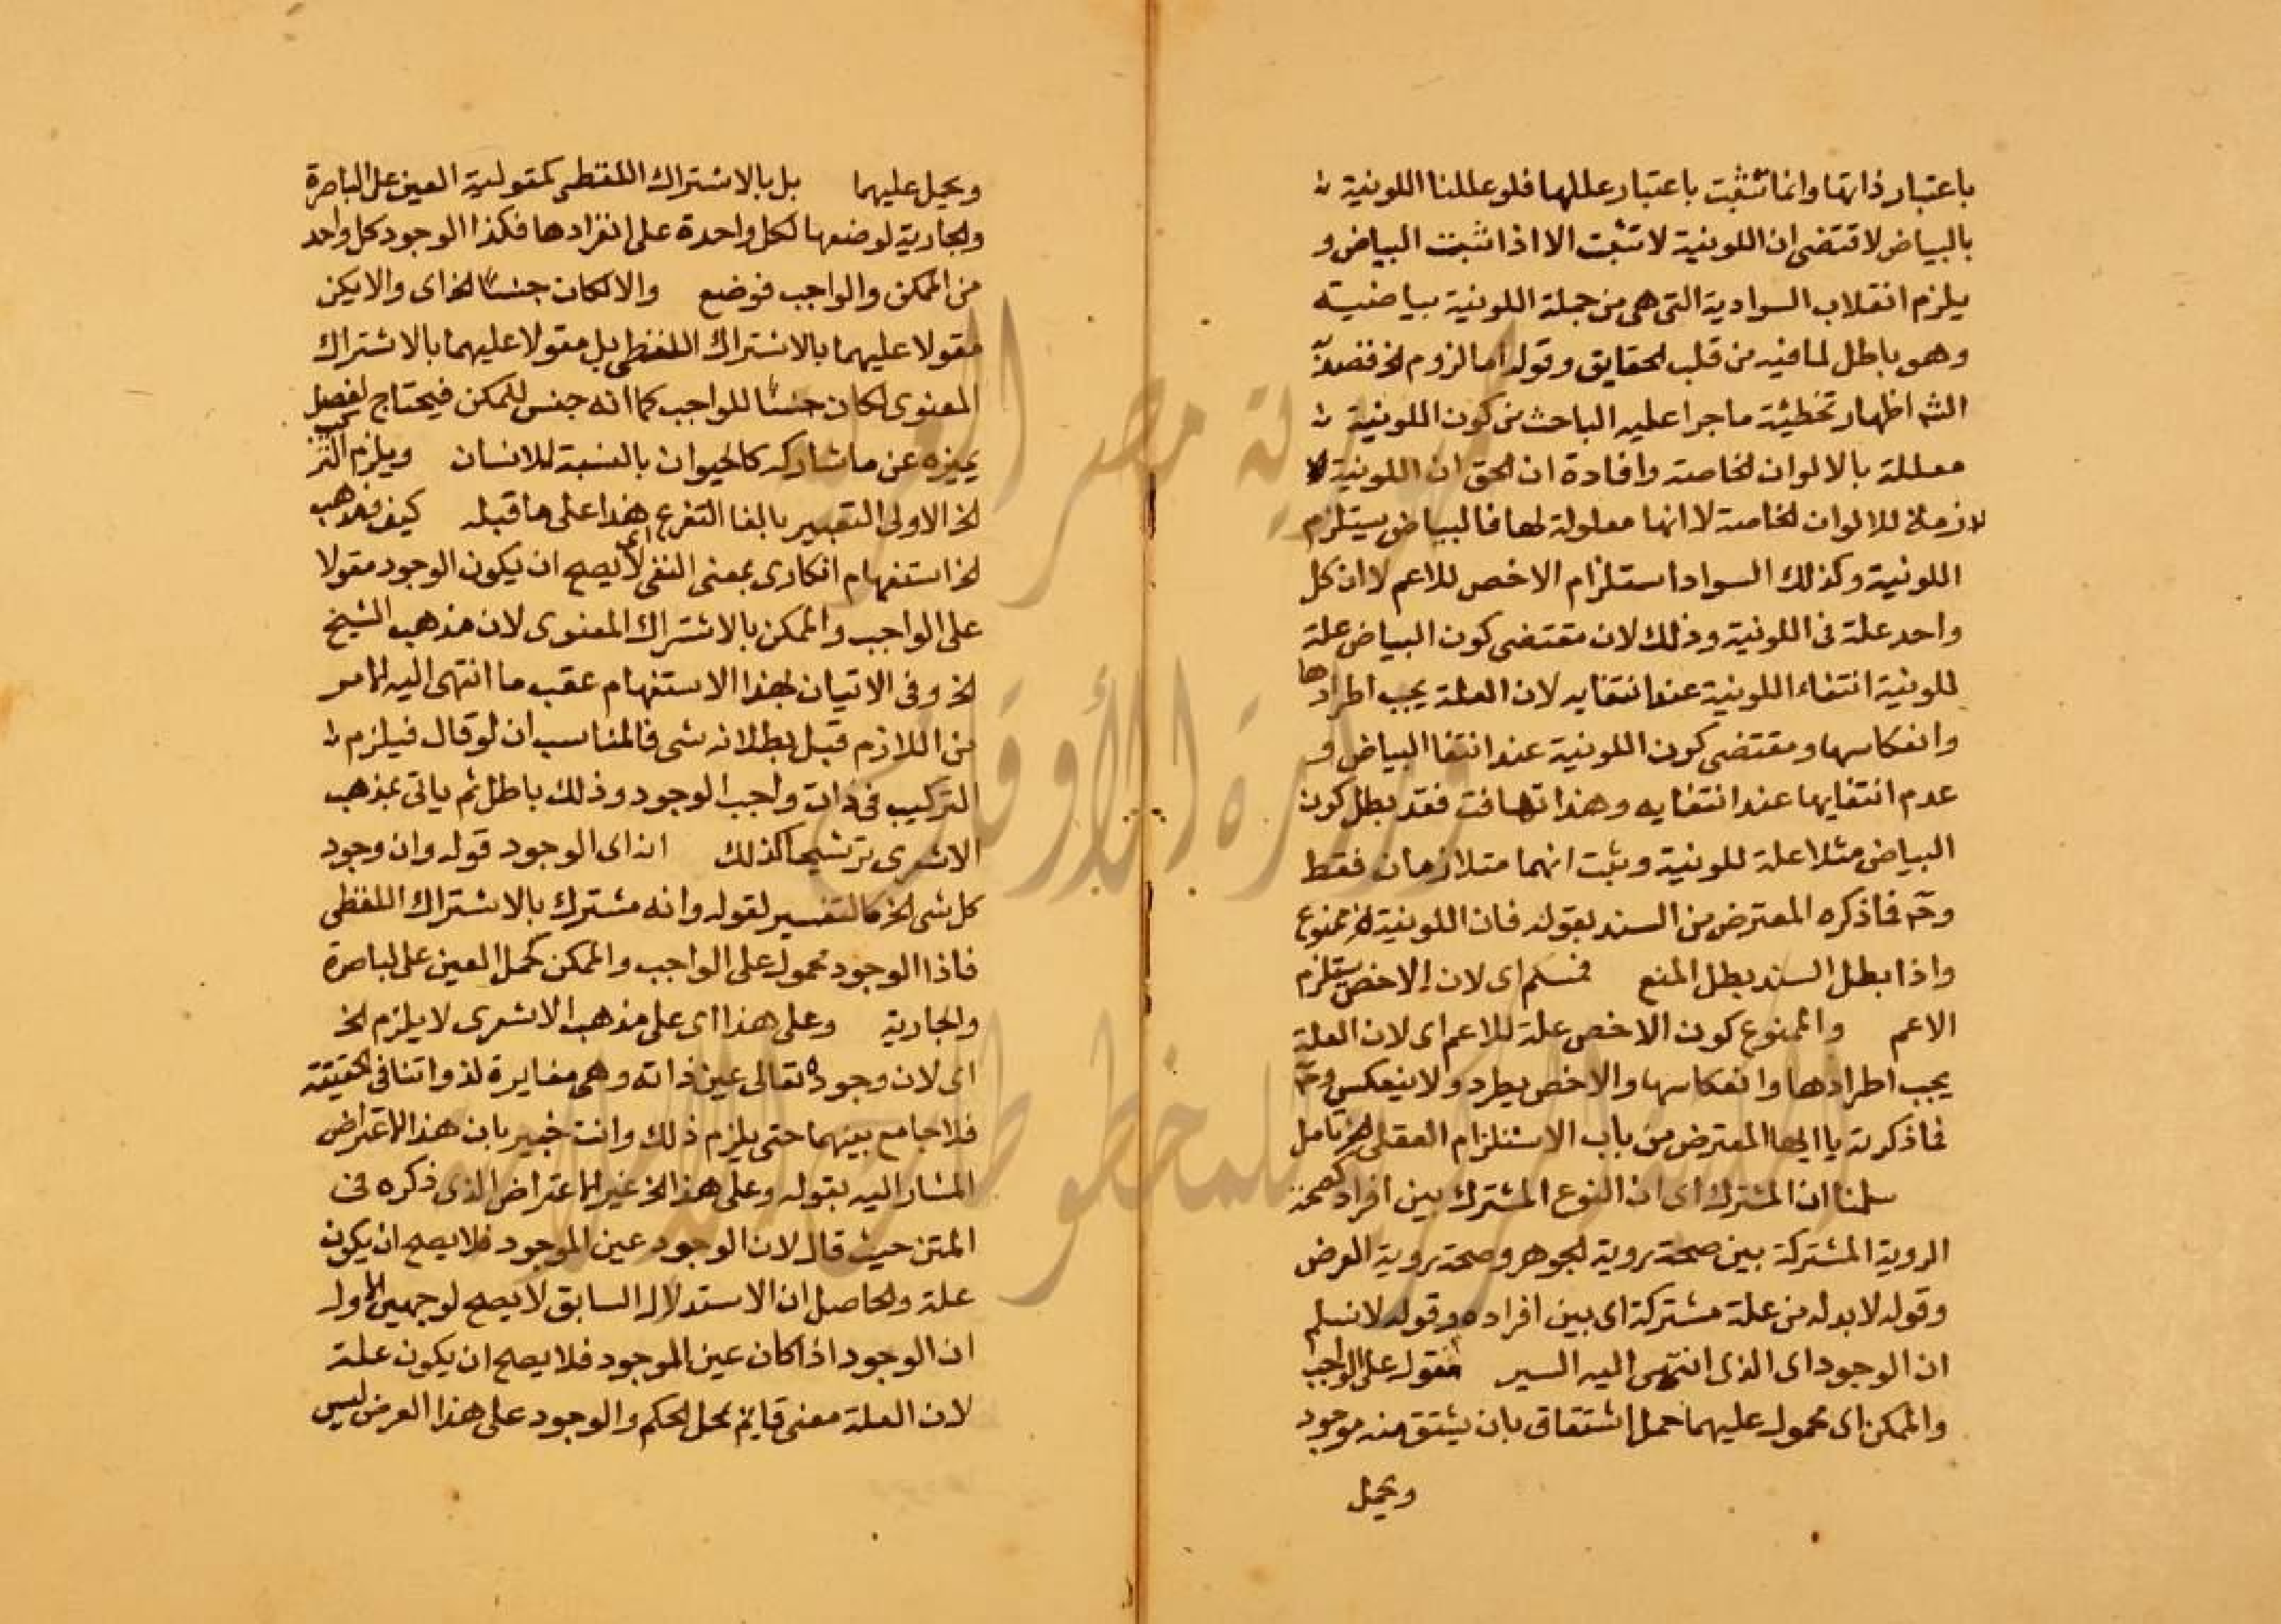 باعتبار ذاتها وانما تثبت باعتبار عللها فلو عللنا اللونية
بالبياض لاقتضى ان اللونية لا تثبت الا اذا ثبت البياض و
يلزم انقلاب السوادية التى هى من جملة اللونية بياضية
وهو باطل لما فيه من قلب الحقايق وقوله اما لزوم الخ فقصد
الش اظهار تخطئة ما جرا عليه الباحث من كون اللونية
معللة بالالوان الخاصة وافادة ان الحق ان اللونية
لازمة للالوان الخاصة لا انها معلولة لها فالبياض يستلزم
اللونية وكذلك السواد استلزام الاخص للاعم لا ان كل
واحد علة فى اللونية وذلك لان مقتضى كون البياض علة
للونية انتفاء اللونية عند انتفايه لان العلة يجب اطرادها
وانعكاسها ومقتضى كون اللونية عند انتفا البياض و
عدم انتفايها عند انتفايه وهذا تهافت فقد بطل كون
البياض مثلا علة للونية وثبت انهما متلازمان فقط
وح فاذكره المعترض من السند بقوله فان اللونية الخ ممنوع
واذا بطل السند بطل المنع فمسلم اى لان الاخص يستلزم
الاعم والممنوع كون الاخص علة للاعم اى لان العلة
يجب اطرادها وانعكاسها والاخص يطرد ولا ينعكس وح
فما ذكرته يا ايها المعترض من باب الاستلزام العقلى الخ تامل
سلمنا ان المشترك اى ان النوع المشترك بين افراد كصحة
الروية المشتركة بين صحة روية الجوهر وصحة روية العرض
وقوله لا بد له من علة مشتركة اى بين افراده وقوله لا نسلم
ان الوجود اى الذى انتهى اليه السير مقول على الواجب
والممكن اى محمول عليهما حمل اشتقاق بان يشتق منه موجود
ويحمل
ويحمل عليهما بل بالاشتراك اللفظى كمقولية العين على الباصرة
والجارية لوضعها لكل واحدة على انفرادها فكذا الوجود كل واحد
من الممكن والواجب فوضع والا لكان جنسا الخ اى والا يكن
مقولا عليهما بالاشتراك اللفظى بل مقولا عليهما بالاشتراك
المعنوى لكان جنسا للواجب كما انه جنس للممكن فيحتاج لفصل
يميزه عن ما شاركه كالحيوان بالنسبة للانسان ويلزم التركيب
الخ الاولى التعبير بالفا التفرع هذا على ما قبله كيف ومذهب
الخ استفهام انكارى بمعنى النفى اى لا يصح ان يكون الوجود مقولا
على الواجب والممكن بالاشتراك المعنوى لان مذهب الشيخ
الخ وفى الاتيان بهذا الاستفهام عقب ما انتهى اليه الامر
من اللازم قبل بطلانه شى فالمناسب ان لو قال فيلزم
التركيب فى ذات واجب الوجود وذلك باطل ثم ياتى بمذهب
الاشعرى ترشيحا لذلك انه اى الوجود قوله وان وجود
كل شى الخ كالتفسير لقوله وانه مشترك بالاشتراك اللفظى
فاذا الوجود محمول على الواجب والممكن كحمل العين على الباصرة
والجارية وعلى هذا اى على مذهب الاشعرى لا يلزم الخ
اى لان وجوده تعالى عين ذاته وهى مغايرة لذواتنا فى الحقيقة
فلا جامع بينهما حتى يلزم ذلك وانت خبير بان هذا الاعتراض
المشار اليه بقوله وعلى هذا الخ غير الاعتراض الذى ذكره فى
المتن حيث قال لان الوجود عين الموجود فلا يصح ان يكون
علة والحاصل ان الاستدلال السابق لا يصح لوجهين الاول
ان الوجود اذا كان عين الموجود فلا يصح ان يكون علة
لان العلة معنى قايم بمحل الحكم والوجود على هذا العرض ليس